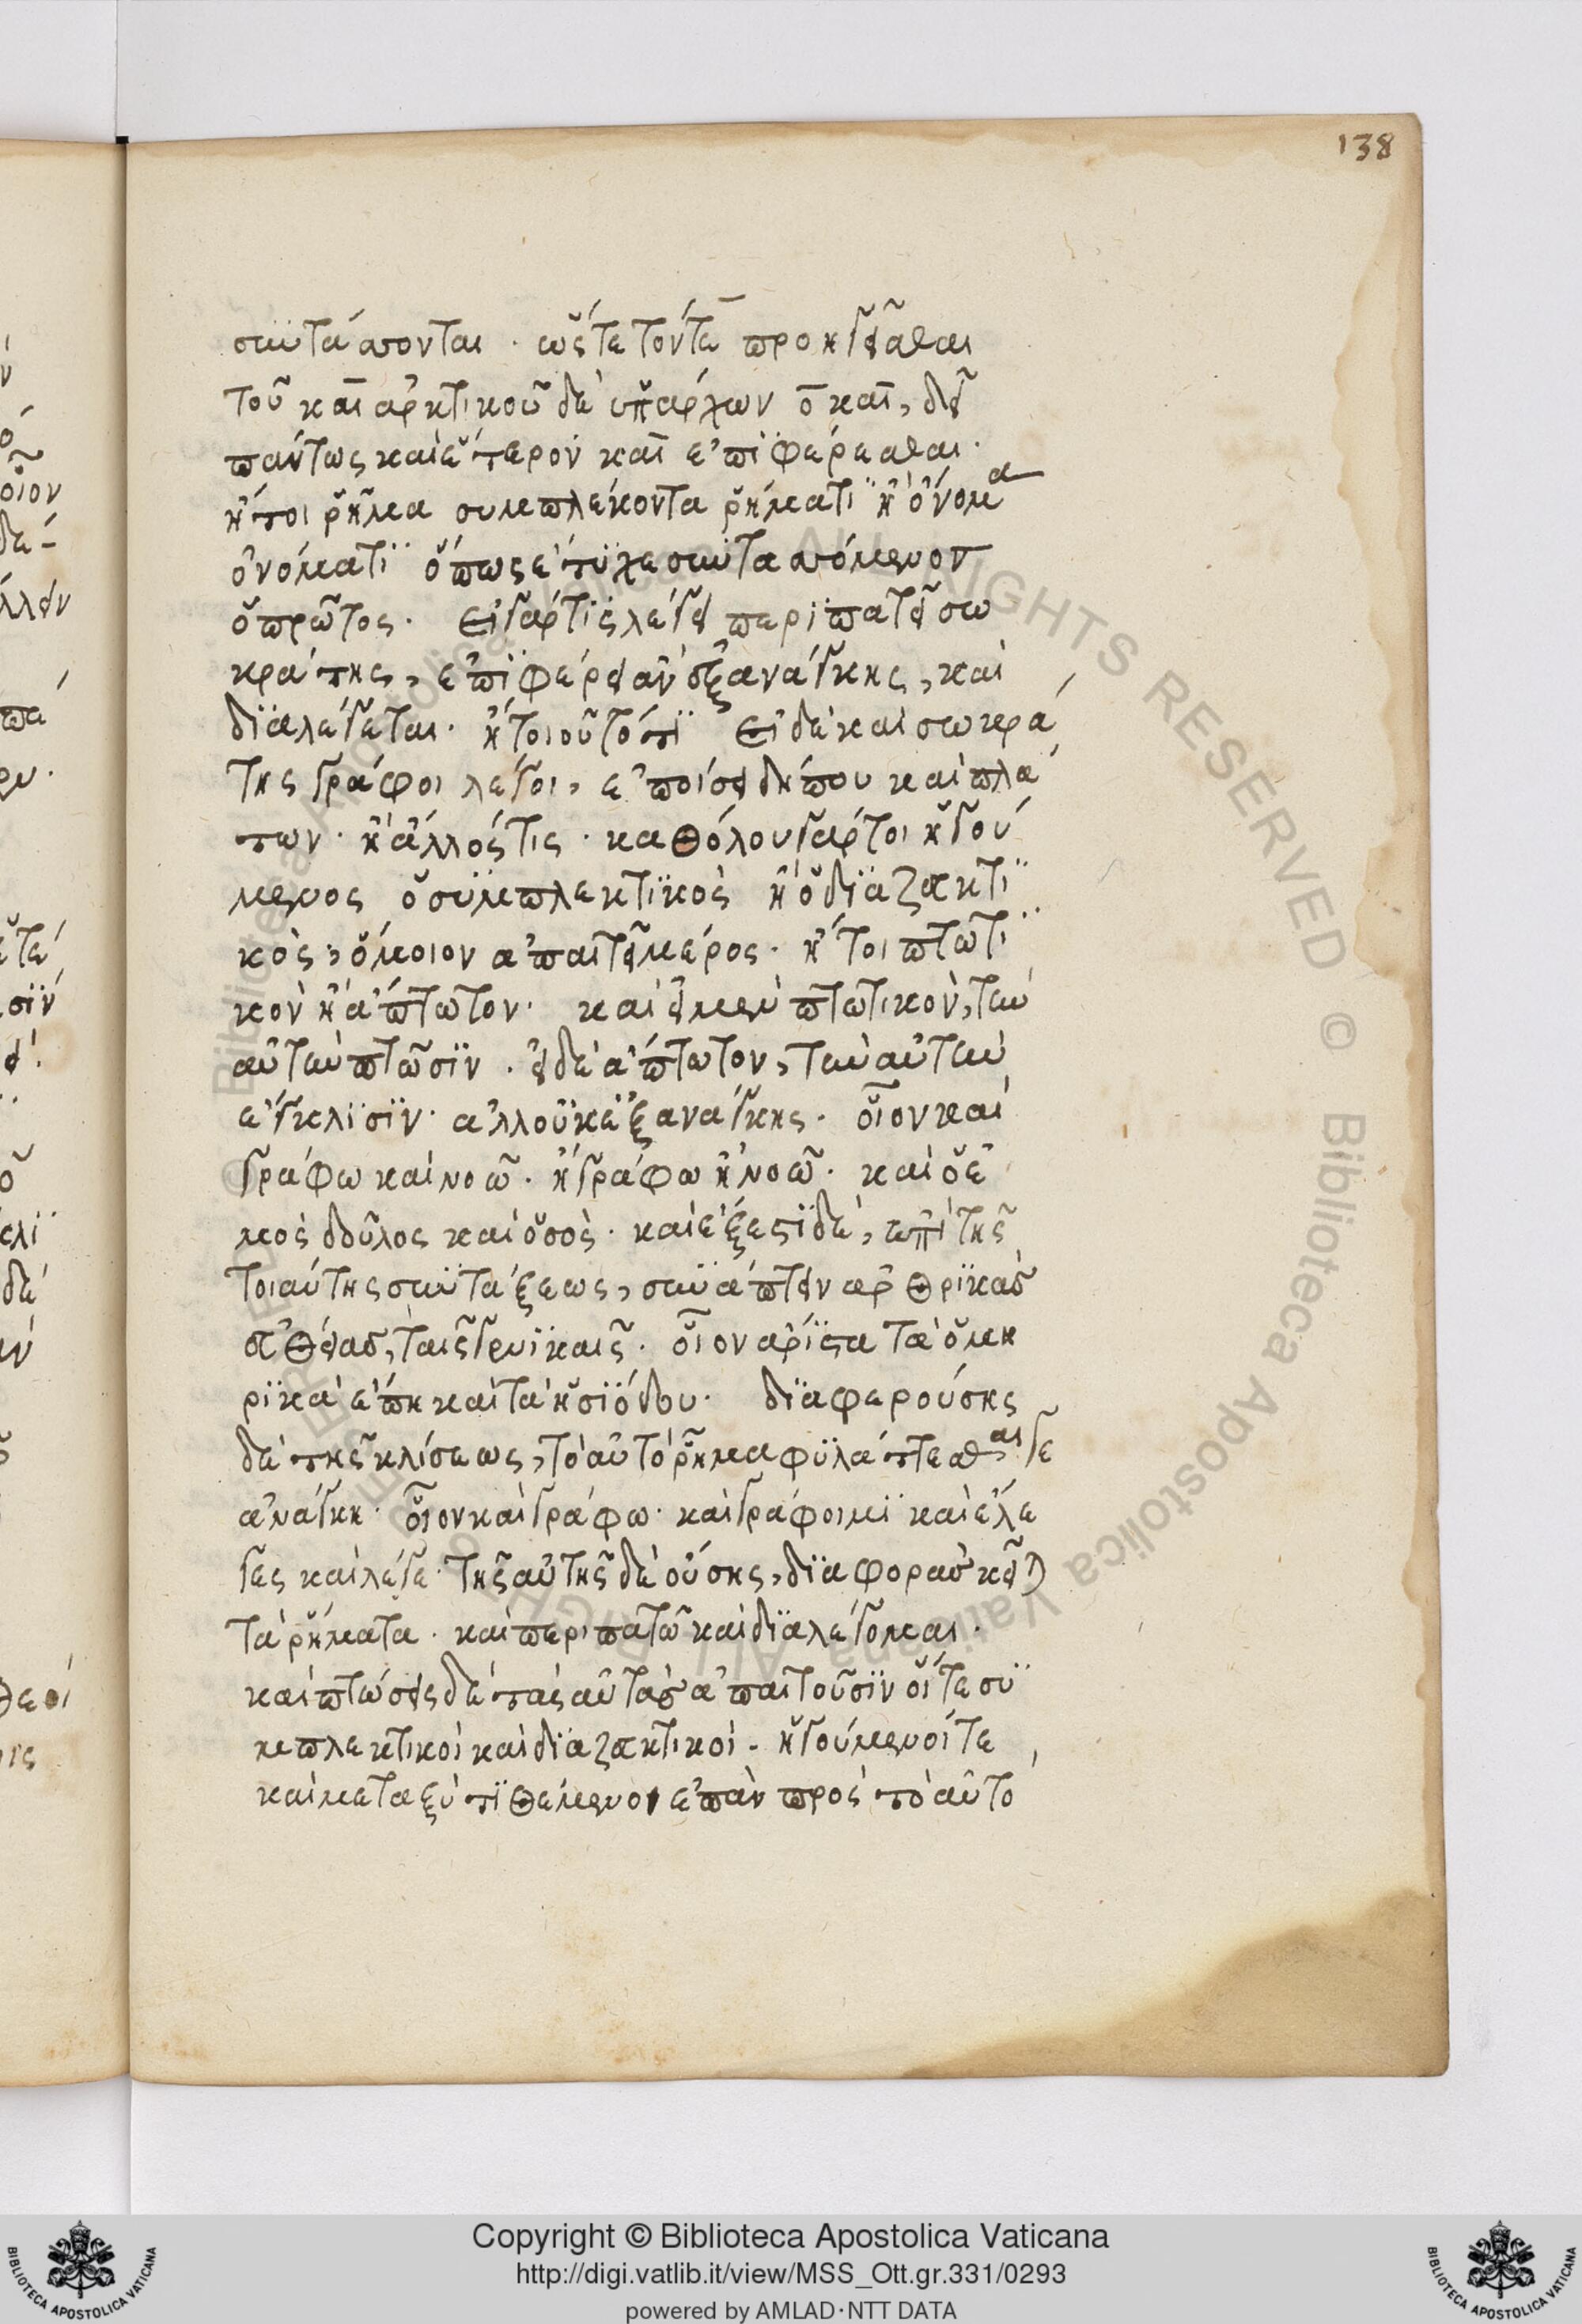 138
συντάττονται · ὥστε τόν τε προηγεῖσθαι
τοῦ καὶ ἀρκτικοῦ δὲ ὑπάρχων ὁ καὶ, δεῖ
πάντως καὶ ἕτερον καὶ ἐπιφέρεσθαι·
ἤτοι ῥῆμα συμπλέκοντα ῥήματι ἢ ὄνομα
ὀνόματι ὅπως ἔτυχε συνταττόμενον
ὁ πρῶτος· Εἰ γάρ τις λέγει περιπατεῖ σω
κράτης, ἐπιφέρει ἂν ἐξ ανάγκης, καὶ
διαλέγεται· ἤτοι οὖ τό τι Εἰ δὲ καὶ σωκρά
της γράφοι λέγοι, ἐποίσει δήπου καὶ πλά
των · ἢ ἄλλός τις · καθόλου γάρ τοι ἡγού
μενος ὁ συμπλεκτικὸς ἢ ὁ διαζακτι
κὸς, ὅμοιον ἀπαιτεῖ μέρος · ἤτοι πτωτι
κὸν ἢ ἄπτωτον · καὶ εἰ μὲν πτωτικὸν, τὴν
αὐτὴν πτῶσιν · εἰ δὲ ἄπτωτον, τὴν αὐτὴν
ἔγκλισιν · ἀλλ οὐκ ἐξ ανάγκης · οἷον καὶ
γράφω καὶ νοῶ · ἢ γράφω ἢ νοῶ · καὶ ὁ ἐ
μὸς δοῦλος καὶ ὁ σὸς · καὶ ἔξεστι δὲ, ἐπὶ τῆς
τοιαύτης συντάξεως, συνάπτειν ἀρθρικὰς
εὐθείας, ταῖς γενικαῖς · οἷον ἄριστα τὰ ὁμη
ρικὰ ἔπη καὶ τὰ ἡσιόδου · διαφερούσης
δὲ τῆς κλίσεως, τὸ αὐτὸ ῥῆμα φυλάττεσθαι γε
ἀνάγκη · οἷον καὶ γράφω · καὶ γράφοιμι καὶ ἔλε
γες καὶ λέγε · τῆς αὐτῆς δὲ οὔσης, διάφορα κεῖται
τὰ ῥήματα · καὶ περιπατῶ καὶ διαλέγομαι ·
καὶ πτώσεις δὲ τὰς αὐτὰς ἀπαιτοῦσιν οἵ τε συ
μπλεκτικοὶ καὶ διαζακτικοὶ · ἡγούμενοί τε
καὶ μεταξὺ τιθέμενοι ἐπὰν πρὸς τὸ αὐτὸ
Copyright © Biblioteca Apostolica Vaticana
http://digi.vatlib.it/view/MSS_Ott.gr.331/0293
powered by AMLAD·NTT DATA